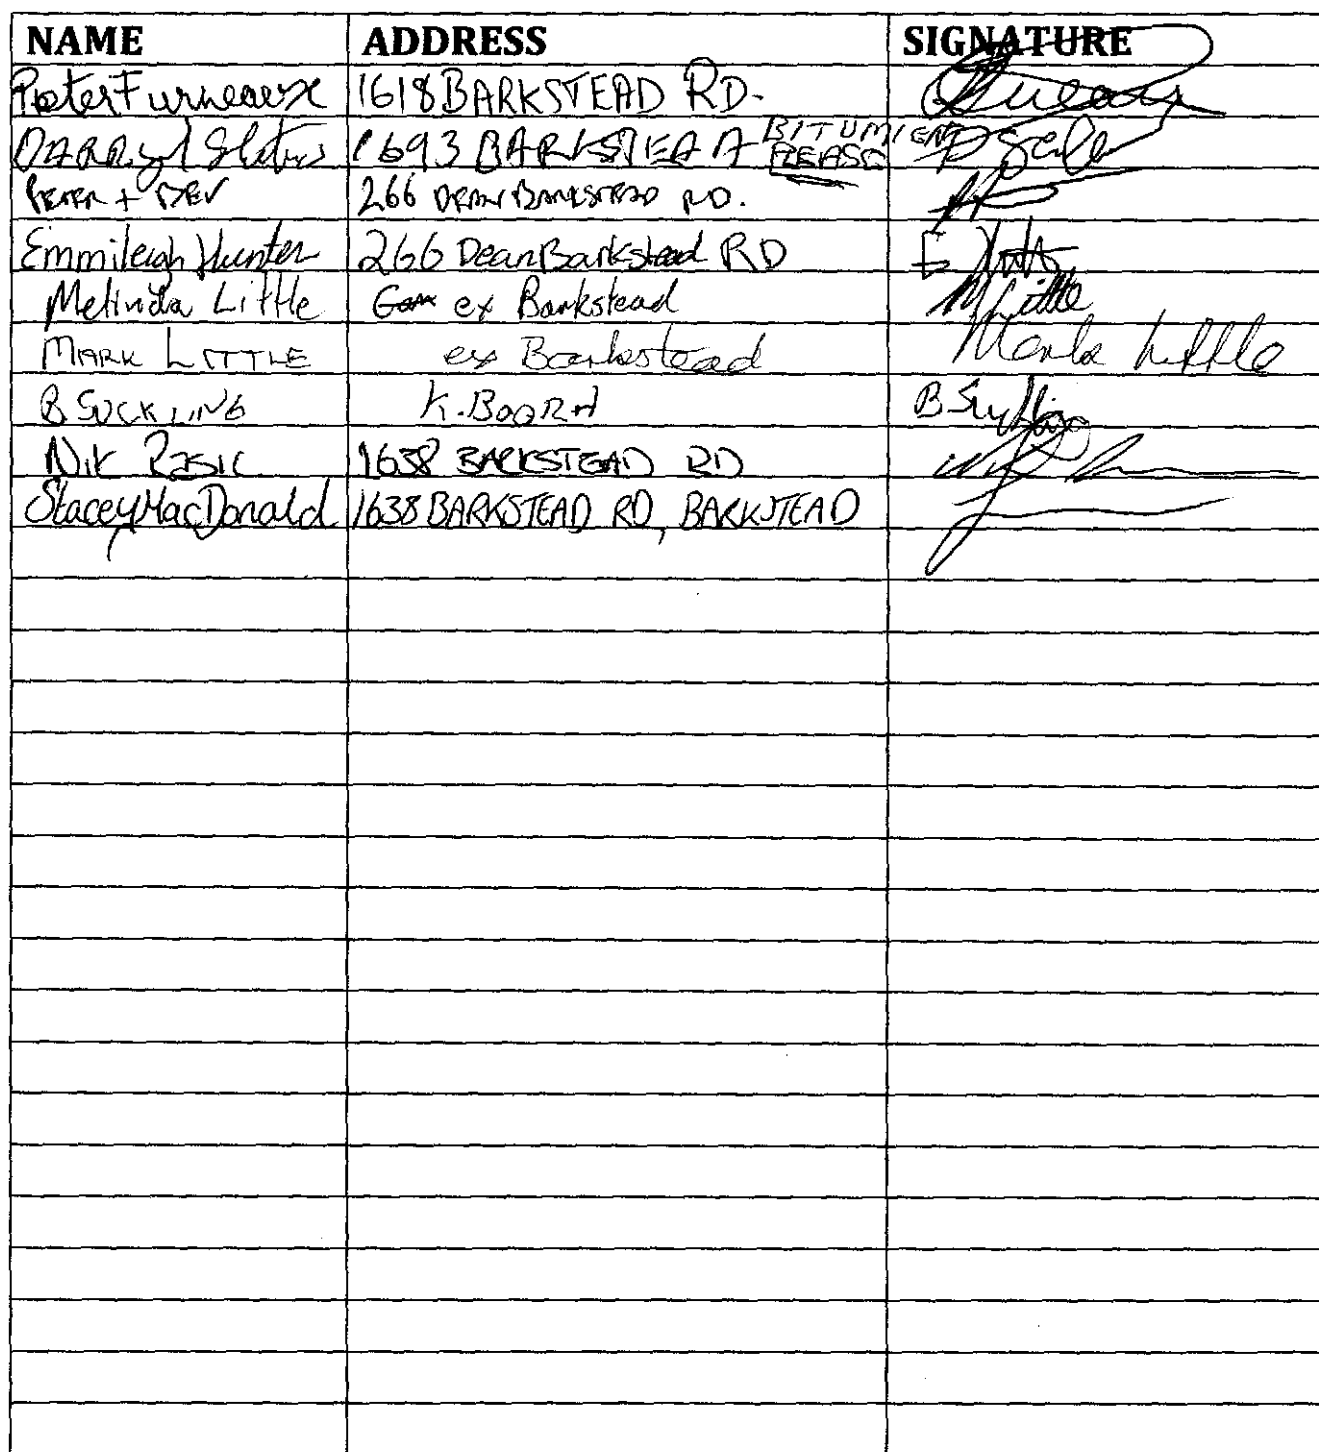 NAME ADDRESS SIGNATURE
Peter Furneaux 1618 BARKSTEAD RD.
DARRyl 1693 BARKSTEAD BITUMIEN
PLEASE
PETER + BEV 266 DEAN BARKSTEAD RD.
Emmileigh Hunter 266 Dean Barkstead RD
Melinda Little ex Barkstead M Little
MARK LITTLE ex Barkstead Mark Little
B SUCKLING K. BOORA B Suckling
Nik Rasic 1638 BARKSTEAD RD
Stacey MacDonald 1638 BARKSTEAD RD, BARKSTEAD